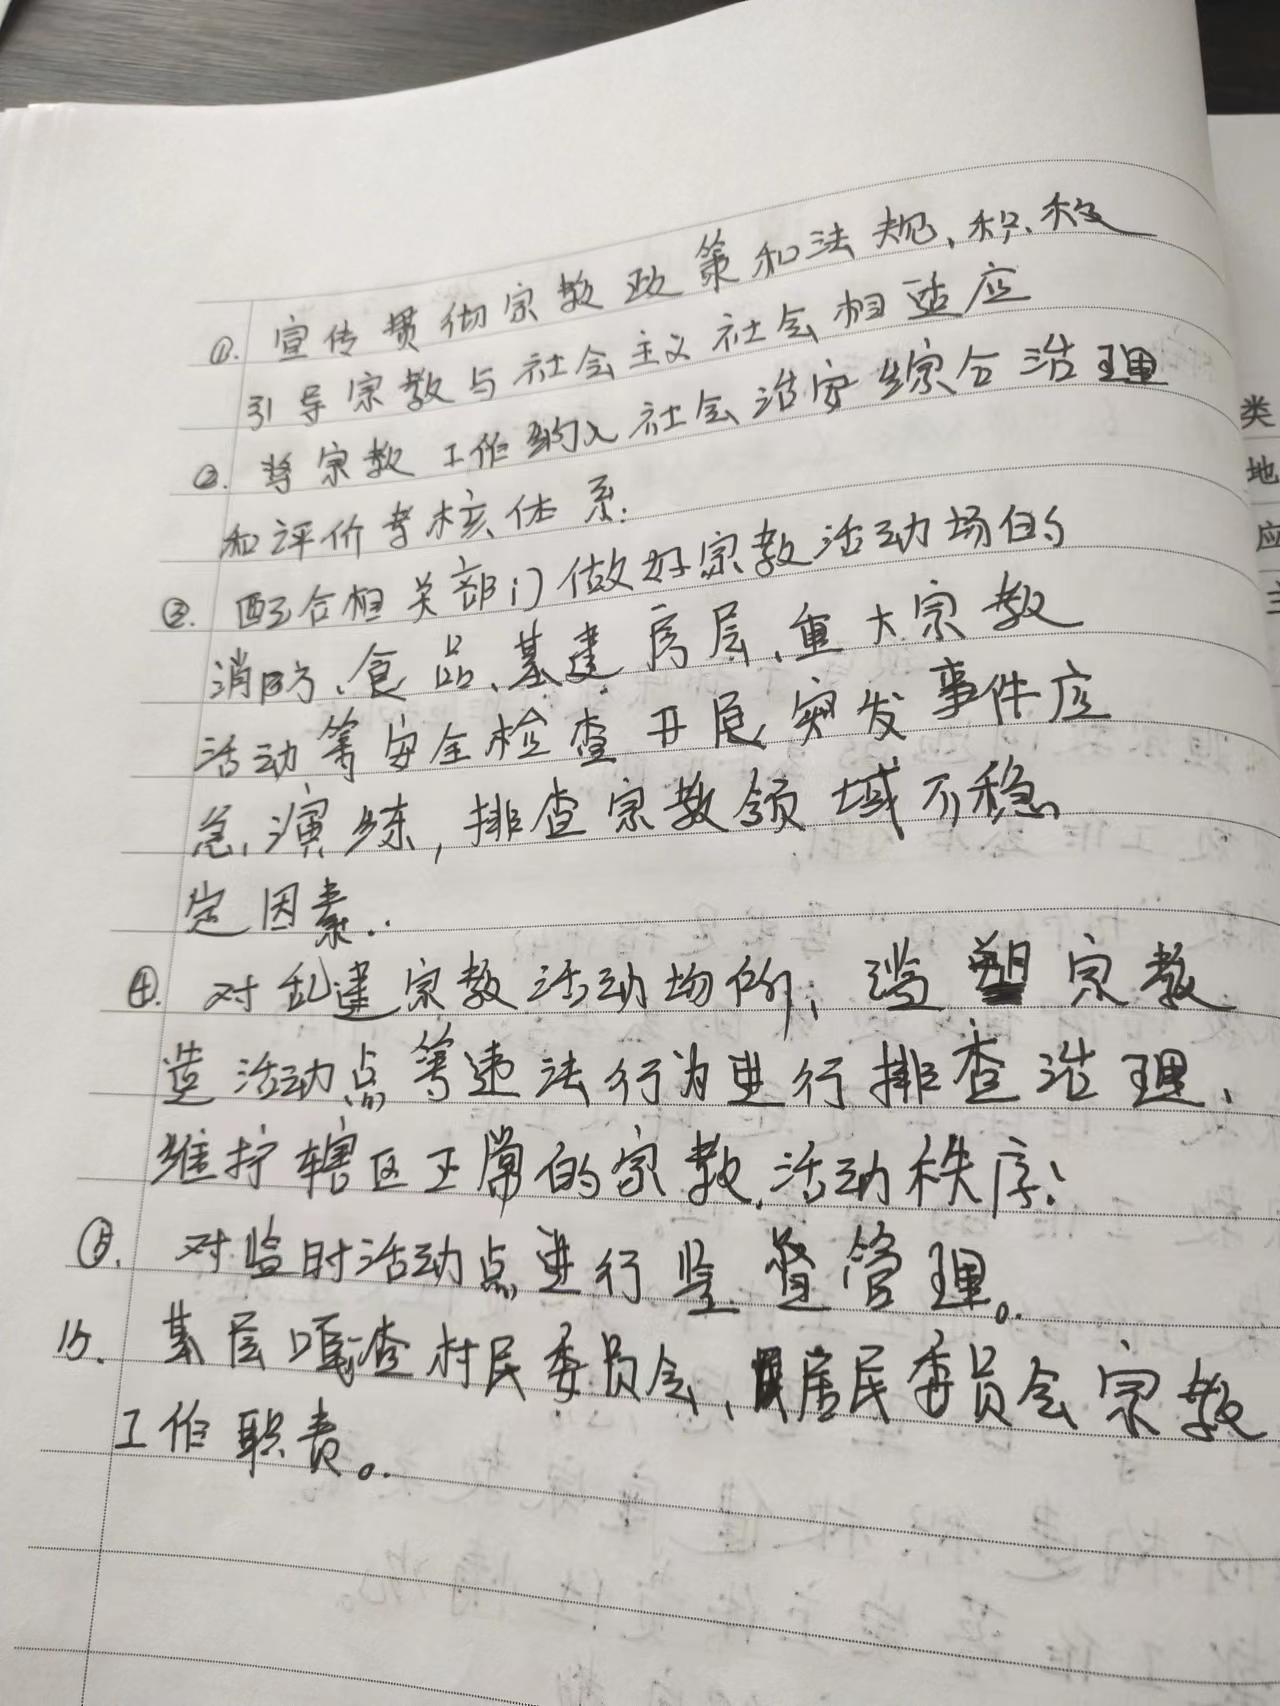 ①. 宣传贯彻宗教政策和法规、积极
引导宗教与社会主义社会相适应
②. 将宗教工作纳入社会治安综合治理
和评价考核体系.
③. 配合相关部门做好宗教活动场的
消防、食品、基建房层、重大宗教
活动等安全检查开展突发事件应
急演练,排查宗教领域不稳
定因素..
④. 对乱建宗教活动场所、滥塑宗教
造活动点等违法行为进行排查治理、
维护辖区正常的宗教活动秩序;
⑤. 对临时活动点进行监督管理。
15. 基层嘎查村民委员会、居民委员会宗教
工作职责。
类
地
应